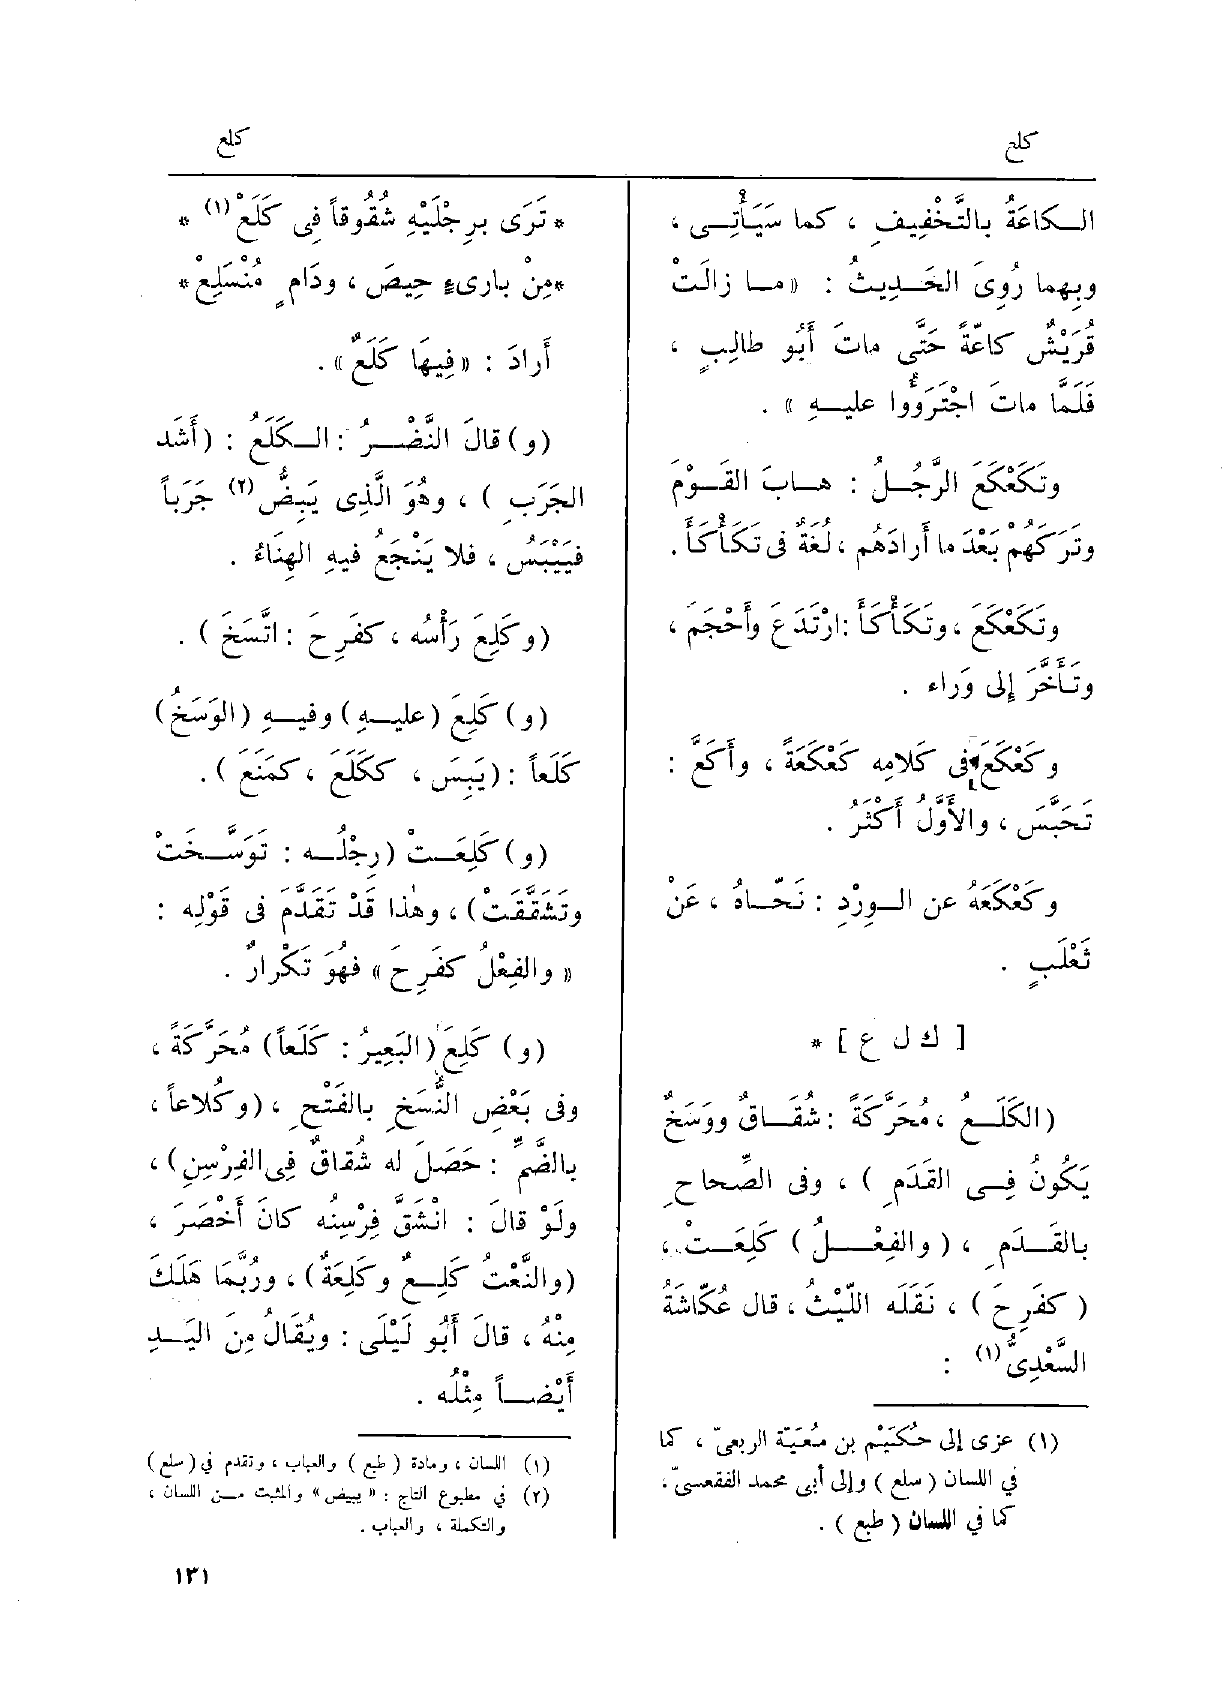 كلع
كلع
الكاعَةُ بالتَّخْفِيفِ ، كما سَيَأْتِى ،
وبِهِما رُوِىَ الحَدِيثُ : « ما زالَتْ
قُرَيْشٌ كاعَّةً حَتَّى ماتَ أَبُو طالِبٍ ،
فَلَمَّا ماتَ اجْتَرَؤُوا عليهِ » .
وتَكَعْكَعَ الرَّجُلُ : هابَ القَوْمَ
وتَرَكَهُم بَعْدَ ما أَرادَهُم ، لُغَةٌ فى تَكَأْكَأَ .
وتَكَعْكَع ، وتَكَأْكَأَ : ارْتَدَعَ وأَحْجَمَ ،
وتَأَخَّرَ إِلى وَراء .
وكَعْكَعَ فى كَلامِه كَعْكَعَةً ، وأَكَعَّ :
تَحَبَّسَ ، والأَوَّلُ أَكْثَرُ .
وكَعْكَعَهُ عن الوِرْدِ : نَحّاهُ ، عَنْ
ثَعْلَبٍ .
[ ك ل ع ] *
(الكَلَعُ ، مُحَرَّكَةً : شُقَاقٌ ووَسَخٌ
يَكُونُ فِى القَدَمِ ) ، وفى الصِّحاحِ
بالقَدَمِ ، ( والفِعْلُ ) كَلِعَتْ ،
( كفَرِحَ ) ، نَقَلَه اللَّيْثُ ، قال عُكّاشَةُ
السَّعْدِىُّ (١) :
(١) عزى إلى حُكَيْمِ بن مُعَيّة الربعىّ ، كما
في اللسان ( سلع ) وإلى أبى محمد الفقعسىّ ،
كما في اللسان ( طبع ) .
* تَرَى بِرِجْلَيْهِ شُقُوقاً فِى كَلَعْ (١) *
* مِنْ بارِىءٍ حِيصَ ، ودَامٍ مُنْسَلِعْ *
أَرادَ : « فِيهَا كَلَعٌ » .
(و) قالَ النَّضْرُ : الكَلَعُ : (أَشَد
الجَرَبِ ) ، وهُوَ الَّذِى يَبِضُّ (٢) جَرَباً
فيَيْبَسُ ، فلا يَنْجَعُ فيهِ الهِنَاءُ .
(وكَلِعَ رَأْسُه ، كفَرِحَ : اتَّسَخَ ) .
(و) كَلِعَ (عليهِ) وفيهِ (الوَسَخُ)
كَلَعاً : (يَبِسَ ، ككَلَعَ ، كمَنَعَ ) .
(و) كَلِعَتْ (رِجْلُه : تَوَسَّخَتْ
وتَشَقَّقَتْ) ، وهٰذا قَدْ تَقَدَّمَ فى قَوْلِه :
« والفِعْلُ كفَرِحَ » فهُوَ تَكْرارٌ .
(و) كَلِعَ (البَعِيرُ : كَلَعاً) مُحَرَّكَةً ،
وفى بَعْضِ النُّسَخِ بالفَتْحِ ، (وكُلاعاً ،
بالضَّمِّ : حَصَلَ له شُقاقٌ فِى الفِرْسِنِ) ،
ولَوْ قالَ : انْشَقَّ فِرْسِنُه كانَ أَخْصَرَ ،
(والنَّعْتُ كَلِعٌ وكَلِعَةٌ) ، ورُبَّمَا هَلَكَ
مِنْهُ ، قالَ أَبُو لَيْلَى : ويُقَالُ مِنَ اليَدِ
أَيْضاً مِثْلُه .
(١) اللسان ، ومادة ( طبع ) والعباب ، وتقدم في ( سلع )
(٢) في مطبوع التاج : « يبيض » والمثبت من اللسان ،
والتكملة ، والعباب .
١٣١